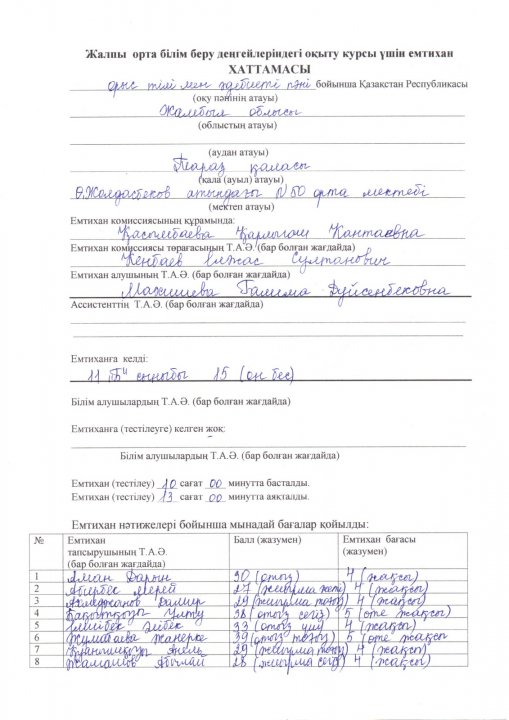 Жалпы орта білім беру деңгейлеріндегі оқыту курсы үшін емтихан
ХАТТАМАСЫ
орыс тілі мен әдебиеті пәні бойынша Қазақстан Республикасы
(оқу пәнінің атауы)
Жамбыл облысы
(облыстың атауы)
(аудан атауы)
Тараз қаласы
(қала (ауыл) атауы)
Ө.Жолдасбеков атындағы №50 орта мектебі
(мектеп атауы)
Емтихан комиссиясының құрамында:
Қасымбаева Қарлығаш Қантаевна
Емтихан комиссиясы төрағасының Т.А.Ә. (бар болған жағдайда)
Кенбаев Султанович
Емтихан алушының Т.А.Ә. (бар болған жағдайда)
Галима Дуйсенбековна
Ассистенттің Т.А.Ә. (бар болған жағдайда)
Емтиханға келді:
11 "Б" сыныбы 15 (он бес)
Білім алушылардың Т.А.Ә. (бар болған жағдайда)
Емтиханға (тестілеуге) келген жоқ:
Білім алушылардың Т.А.Ә. (бар болған жағдайда)
Емтихан (тестілеу) 10 сағат 00 минутта басталды.
Емтихан (тестілеу) 13 сағат 00 минутта аяқталды.
Емтихан нәтижелері бойынша мынадай бағалар қойылды:
№ Емтихан тапсырушының Т.А.Ә. (бар болған жағдайда) Балл (жазумен) Емтихан бағасы (жазумен)
1 Аман Дарын 30 (отыз) 4 (жақсы)
2 Мерей 27 (жиырма жеті) 4 (жақсы)
3 29 (жиырма тоғыз) 4 (жақсы)
4 38 (отыз сегіз) 5 (өте жақсы)
5 Зейбек 33 (отыз үш) 4 (жақсы)
6 Жумагаева Жанерке 39 (отыз тоғыз) 5 (өте жақсы
7 29 (жиырма тоғыз) 4 (жақсы)
8 Жаманов Абылай 28 (жиырма сегіз) 4 (жақсы)